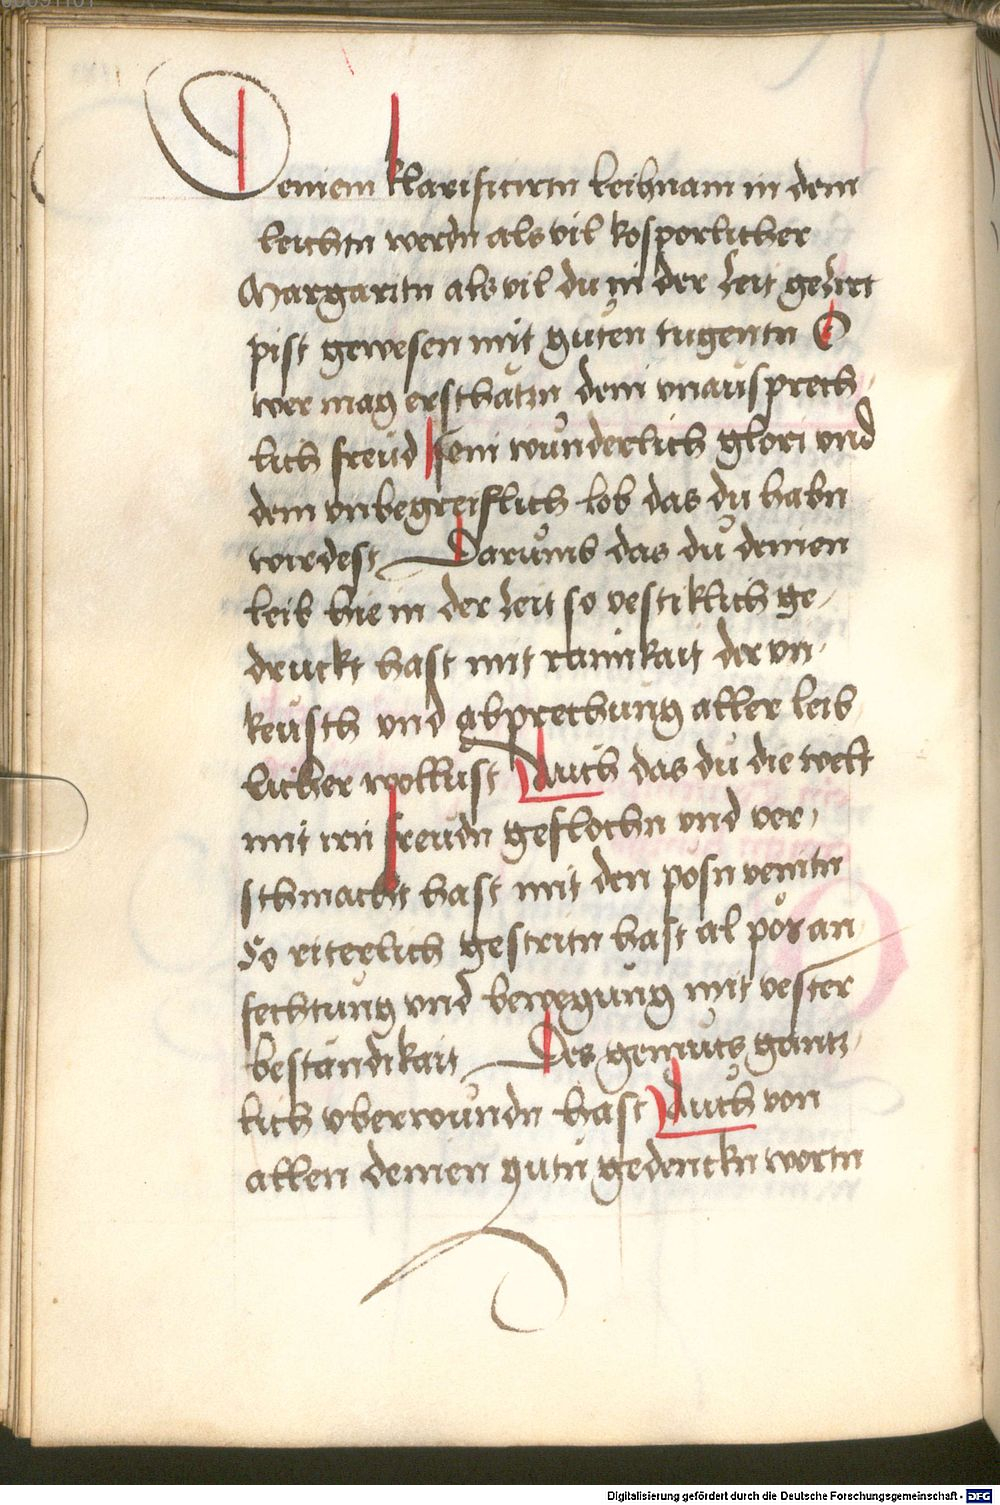 Deinem klarificirtn leihnam in dem
leichtn werdn als vil kosporlicher
Margaritn als vil du in der zeit geziert
pist gewesen mit guten tugentn O
wer mag erschätzn dein vnaussprech
lich freud sein wunderlich glori vnd
dein vnbegreiflich lob das du habn
wirdest Darumb das du deinen
leib hie in der zeit so vestiklich ge
druckt hast mit rainikait der vn
keusch vnd abprechung aller leib
licher wollust Auch das du die welt
mit irn freudn geflochn vnd ver
schmacht hast mit den posn veintn
so riterlich gestritn hast al pös an
fechtung vnd bewegung mit vester
bestandikait Des gemuts gantz
lich vberwundn hast Auch von
allen deinen gutn gedenckn wortn
Digitalisierung gefördert durch die Deutsche Forschungsgemeinschaft - DFG